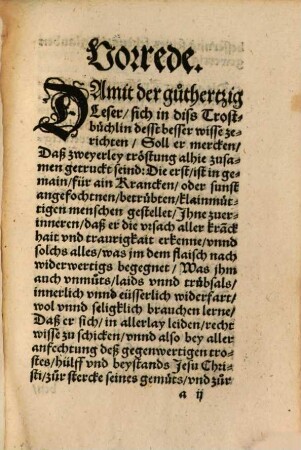 Vorrede.
DAmit der gůthertzig
Leser/ sich in diß Trost-
büchlin desst besser wisse ze-
richten/ Soll er mercken/
Daß zweyerley tröstung alhie zusa-
men getruckt seind: Die erst/ ist in ge-
main/ für ain Krancken/ oder sunst
angefochtnen/ betrübten/ klainmüt-
tigen menschen gestellet/ Ihne zuer-
inneren/ daß er die vrsach aller kräck
hait vnd traurigkait erkenne/ vnnd
solchs alles/ was jm dem flaisch nach
widerwertigs begegnet/ Was jhm
auch vnmůts/ laids vnnd trübsals/
innerlich vnnd eüsserlich widerfart/
wol vnnd seligklich brauchen lerne/
Daß er sich/ in allerlay leiden/ recht
wisse zu schicken/ vnnd also bey aller
anfechtung deß gegenwertigen tro-
stes/ hülff vnd beystands Jesu Chri-
sti/ zůr stercke seines gemůts/ vnd zůr
a ij